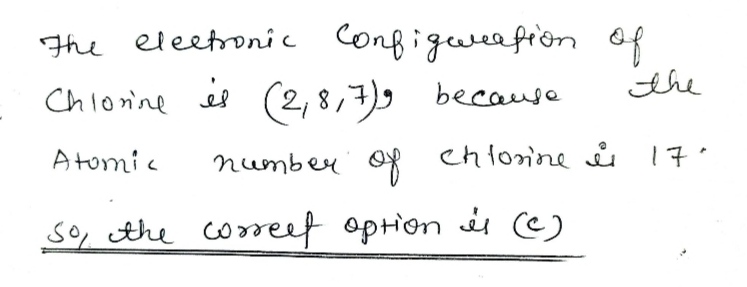 The electronic Configuration of
Chlorine is (2,8,7), because the
Atomic number of chlorine is 17.
so, the correct option is (c)